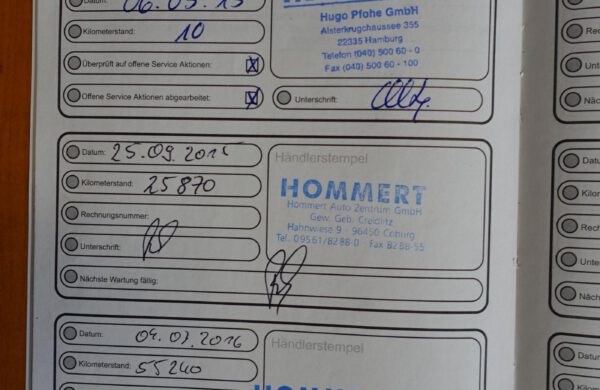 Datum: 06.05.15
Kilometerstand: 10
Überprüft auf offene Service Aktionen:
Offene Service Aktionen abgearbeitet:
Hugo Pfohe GmbH
Alsterkrugchaussee 355
22335 Hamburg
Telefon (040) 500 60 - 0
Fax (040) 500 60 - 100
Unterschrift:
Datum: 25.09.2015
Kilometerstand: 25870
Rechnungsnummer:
Unterschrift:
Nächste Wartung fällig:
Händlerstempel
HOMMERT
Hommert Auto Zentrum GmbH
Gew. Geb. Creidlitz
Hahnwiese 9 - 96450 Coburg
Tel. 09561/8288-0 - Fax 8288-55
Datum: 04.07.2016
Kilometerstand: 55240
Händlerstempel
HOMMERT
Datu
Kilor
Rech
Unte
Näch
Datur
Kilon